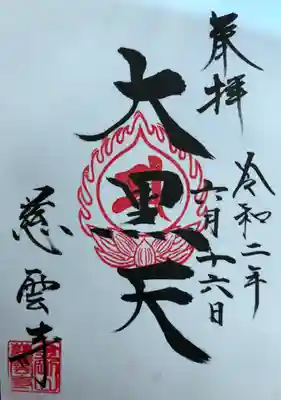 奉拝
令和二年
六月十六日
大黒天
慈雲寺